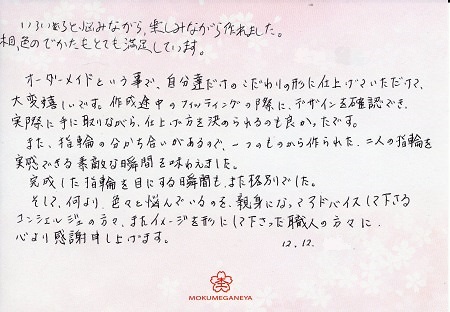 いろいろと悩みながら、楽しみながら作れました。
相色のでかたもとても満足しています。
オーダーメイドという事で、自分達だけのこだわりの形に仕上げていただけて、
大変嬉しいです。作成途中のフィッティングの際に、デザインを確認でき、
実際に手に取りながら、仕上げ方を決められるのも良かったです。
また、指輪の分かち合いがあるので、一つのものから作られた、二人の指輪を
実感できる素敵な瞬間を味わえました。
完成した指輪を目にする瞬間も、また格別でした。
そして、何より、色々と悩んでいるのを、親身になってアドバイスして下さる
コンシェルジュの方々、またイメージを形にして下さった職人の方々に、
心より感謝申し上げます。
12.12.
MOKUMEGANEYA